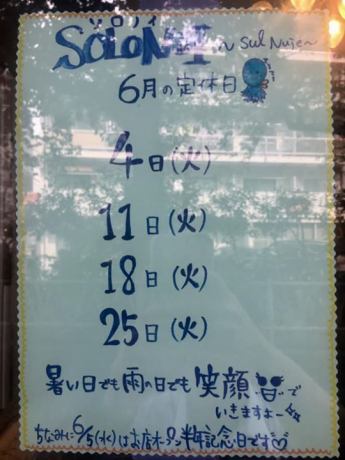 ソロノイ
SOLONOI ~ Sul Nuie~
6月の定休日
4日(火)
11日(火)
18日(火)
25日(火)
暑い日でも雨の日でも笑顔で
いきますよー
ちなみに6/5(水)はお店オープン半年記念日です♡